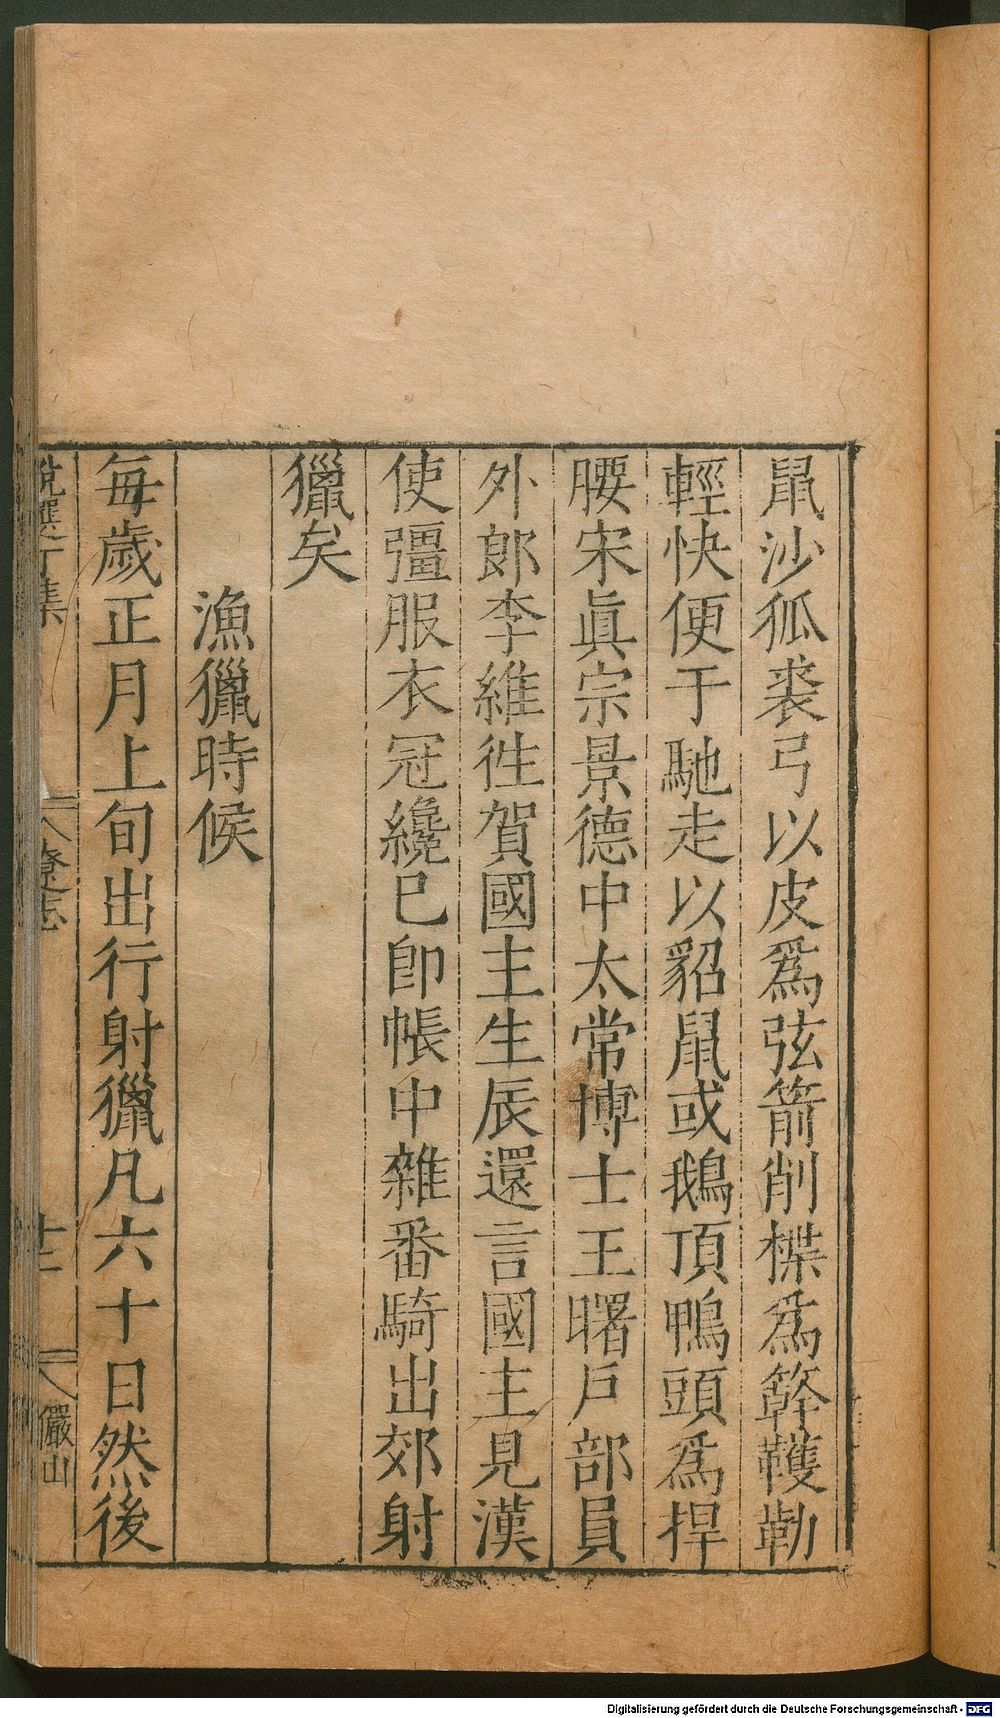 鼠沙狐裘弓以皮爲弦箭削樺爲簳韄勒
輕快便于馳走以貂鼠或鵝頂鴨頭爲捍
腰宋眞宗景德中太常博士王曙戶部員
外郎李維徃賀國主生辰還言國主見漢
使彊服衣冠纔已卽帳中雜番騎出郊射
獵矣
漁獵時候
每歲正月上旬出行射獵凡六十日然後
說選丁集
遼志
十二
儼山
Digitalisierung gefördert durch die Deutsche Forschungsgemeinschaft - DFG